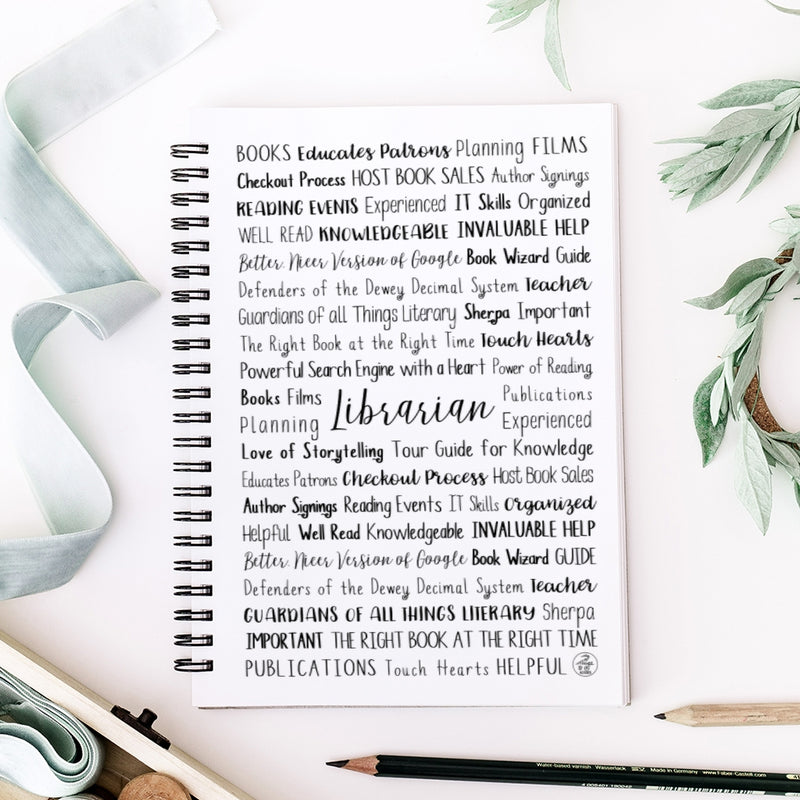 BOOKS Educates Patrons Planning FILMS
Checkout Process HOST BOOK SALES Author Signings
READING EVENTS Experienced IT Skills Organized
WELL READ KNOWLEDGEABLE INVALUABLE HELP
Better, Nicer Version of Google Book Wizard Guide
Defenders of the Dewey Decimal System Teacher
Guardians of all Things Literary Sherpa Important
The Right Book at the Right Time Touch Hearts
Powerful Search Engine with a Heart Power of Reading
Books Films Librarian Publications
Planning Experienced
Love of Storytelling Tour Guide for Knowledge
Educates Patrons Checkout Process Host Book Sales
Author Signings Reading Events IT Skills Organized
Helpful Well Read Knowledgeable INVALUABLE HELP
Better, Nicer Version of Google Book Wizard GUIDE
Defenders of the Dewey Decimal System Teacher
GUARDIANS OF ALL THINGS LITERARY Sherpa
IMPORTANT THE RIGHT BOOK AT THE RIGHT TIME
PUBLICATIONS Touch Hearts HELPFUL
Water-based varnish Wasserlack Made in Germany www.Faber-Castell.com